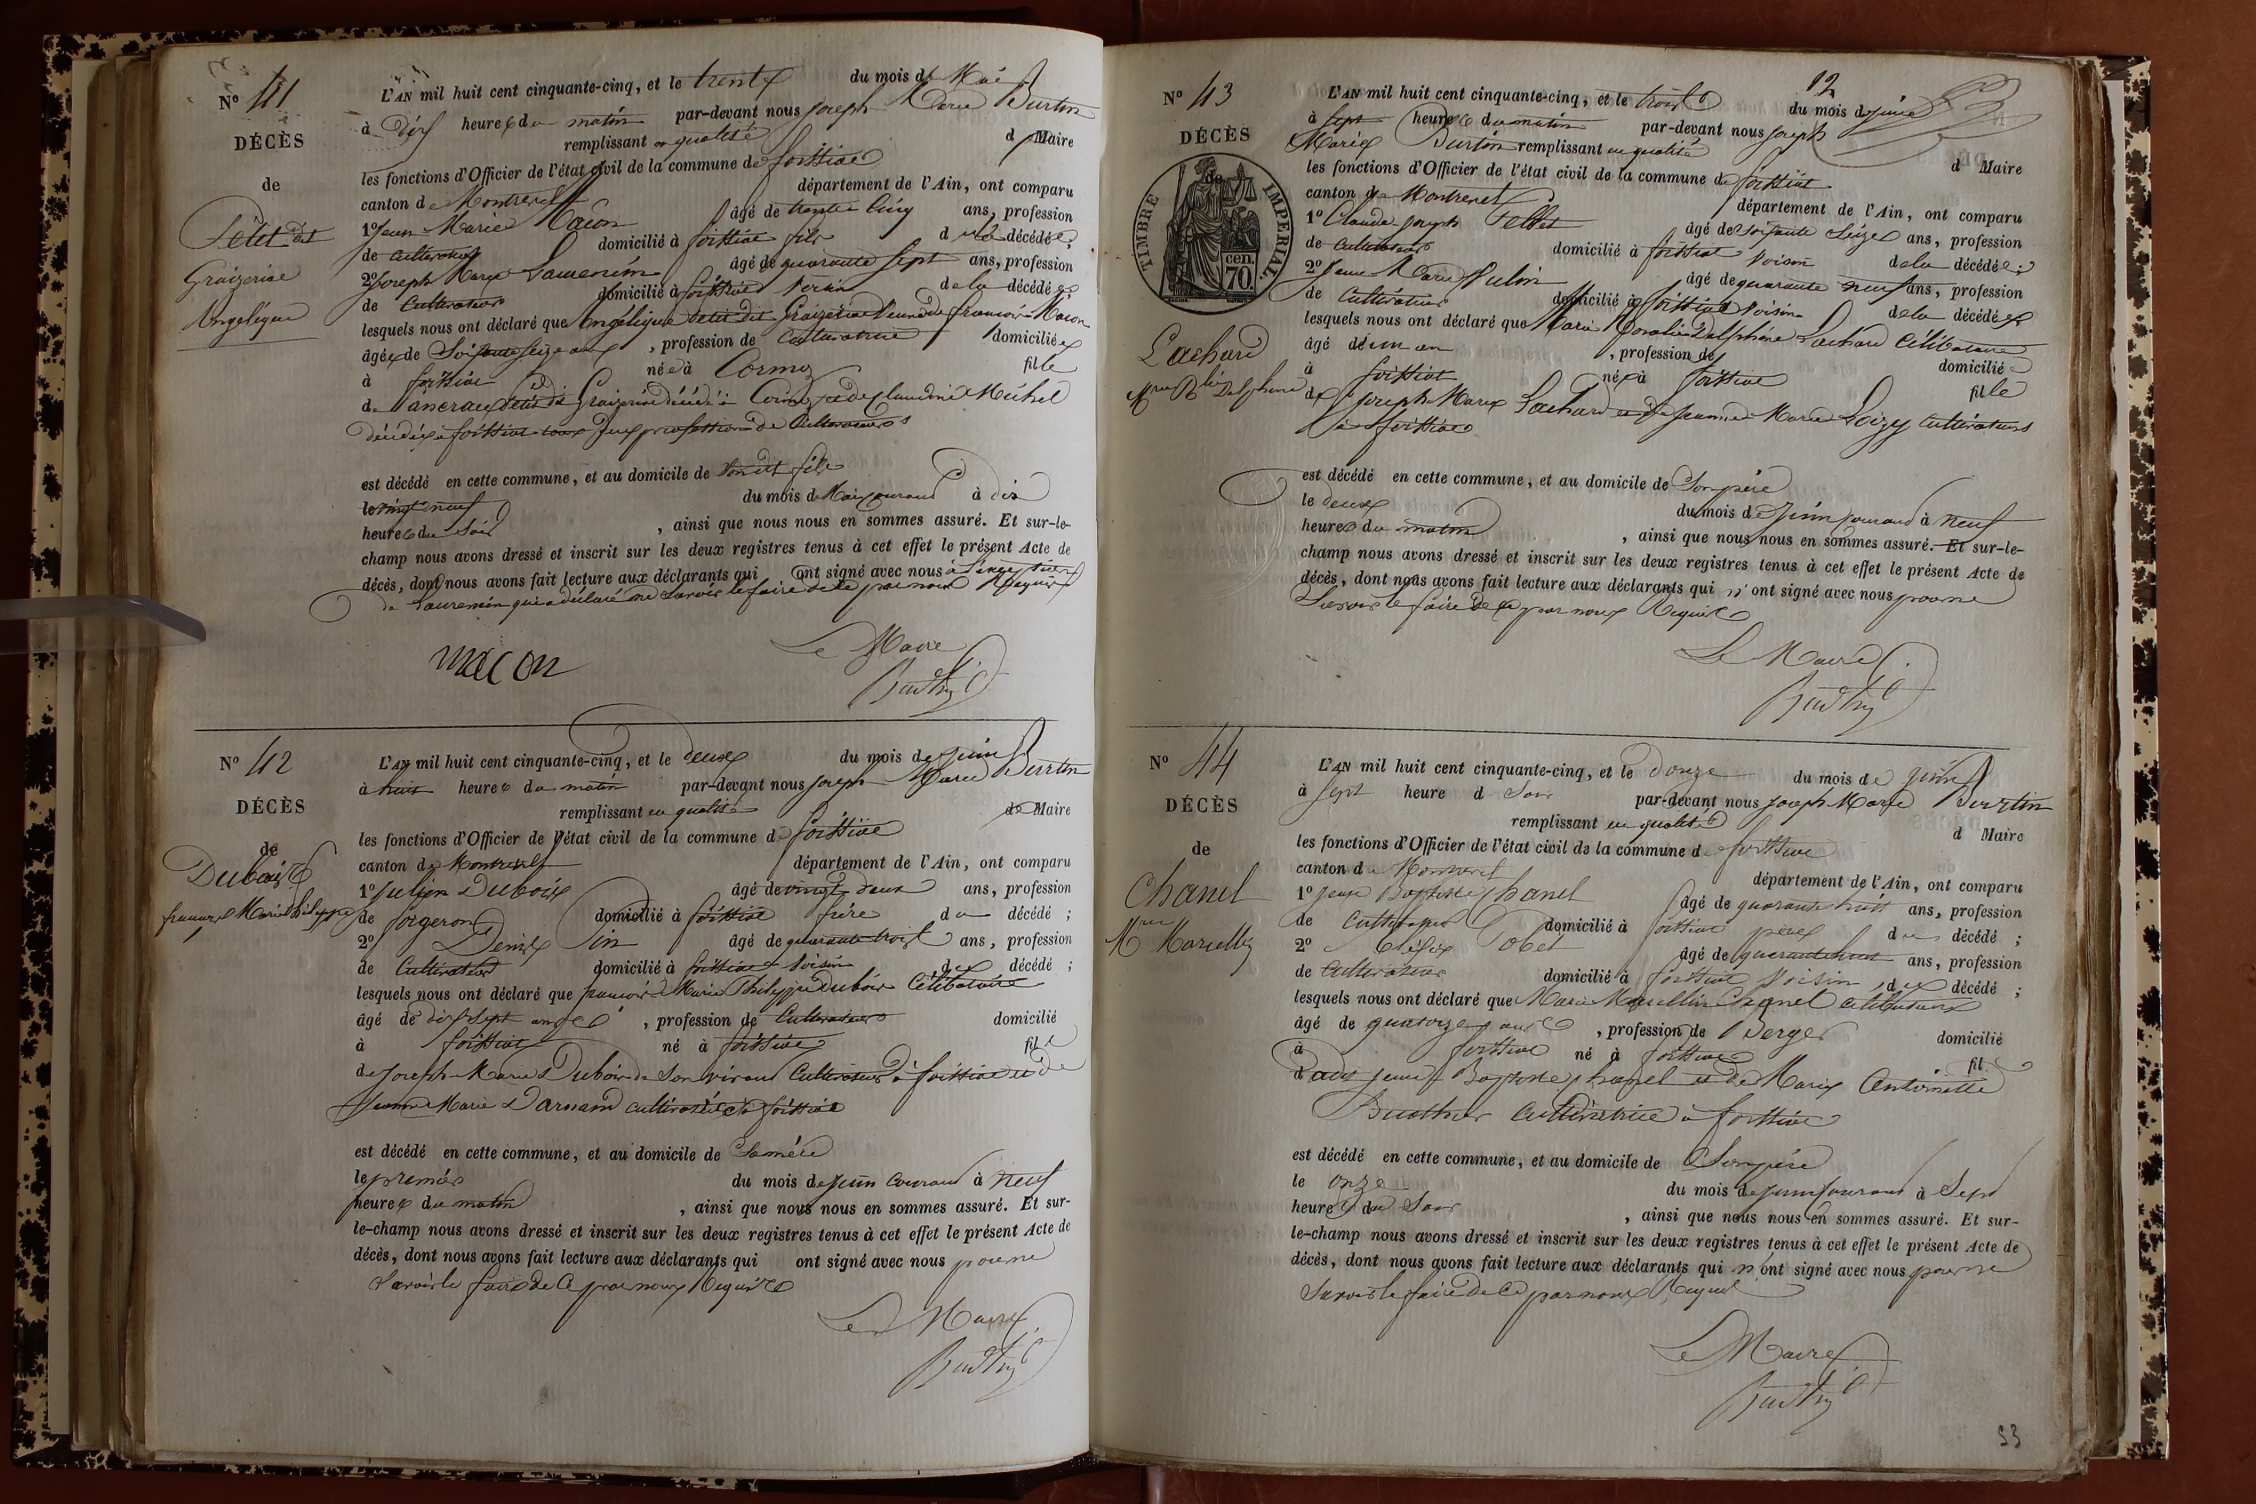 N° 41
DÉCÈS
de
Petit dit
Graizeriae
Angélique
L'AN mil huit cent cinquante-cinq, et le trente du mois de Mai
à Dix heures du matin par-devant nous joseph Marie Burtin
remplissant en qualité de Maire
les fonctions d'Officier de l'état civil de la commune de foissiat
canton de Montrevel département de l'Ain, ont comparu
1° Jean Marie Macon âgé de trente Cinq ans, profession
de Cultivateur domicilié à foissiat fils de la décédée;
2° Joseph Marie âgé de quarante sept ans, profession
de Cultivateur domicilié à foissiat voisin de la décédée;
lesquels nous ont déclaré que Angélique Petit dit veuve de françois Macon
âgée de soixante seize ans, profession de Cultivatrice domiciliée
à foissiat née à Cormoz fille
de Pancrace Petit dit décédé à Cormoz et de Claudine Michel
décédée à foissiat tous deux profession de Cultivateurs
est décédé en cette commune, et au domicile de son dit fils
le vingt neuf du mois de Mai courant à dix
heures du soir, ainsi que nous nous en sommes assuré. Et sur-le-
champ nous avons dressé et inscrit sur les deux registres tenus à cet effet le présent Acte de
décès, dont nous avons fait lecture aux déclarants qui ont signé avec nous
qui a déclaré ne savoir le faire de ce par nous Requis
macon
Le Maire
Burtin
N° 42
DÉCÈS
de
Dubois
françois Marie Philippe
L'AN mil huit cent cinquante-cinq, et le deux du mois de juin
à huit heures du matin par-devant nous joseph Marie Burtin
remplissant en qualité de Maire
les fonctions d'Officier de l'état civil de la commune de foissiat
canton de Montrevel département de l'Ain, ont comparu
1° Julien Dubois âgé de vingt deux ans, profession
de forgeron domicilié à foissiat frère du décédé;
2° Denis Pin âgé de quarante trois ans, profession
de Cultivateur domicilié à foissiat voisin du décédé;
lesquels nous ont déclaré que françois Marie Philippe Dubois Célibataire
âgé de dix sept ans, profession de Cultivateur domicilié
à foissiat né à foissiat fils
de Joseph Marie Dubois de son vivant Cultivateur à foissiat et de
Jeanne Marie Darnand cultivatrice à foissiat
est décédé en cette commune, et au domicile de Sa mère
le premier du mois de juin courant à neuf
heures du matin, ainsi que nous nous en sommes assuré. Et sur-
le-champ nous avons dressé et inscrit sur les deux registres tenus à cet effet le présent Acte de
décès, dont nous avons fait lecture aux déclarants qui ont signé avec nous pour ne
savoir le faire de ce par nous Requis
Le Maire
Burtin
12
N° 43
DÉCÈS
de
TIMBRE IMPÉRIAL
cen.
70.
Lachard
Mie Rlie Delphine
L'AN mil huit cent cinquante-cinq, et le trois du mois de juin
à sept heures du matin par-devant nous joseph
Marie Burtin remplissant en qualité de Maire
les fonctions d'Officier de l'état civil de la commune de foissiat
canton de Montrevel département de l'Ain, ont comparu
1° Claude joseph âgé de soixante seize ans, profession
de Cultivateur domicilié à foissiat voisin de la décédée;
2° Jean Marie Pulin âgé de quarante neuf ans, profession
de Cultivateur domicilié à foissiat voisin de la décédée
lesquels nous ont déclaré que Marie Rosalie Delphine Lachard Célibataire
âgé de un an, profession de domicilié
à foissiat née à foissiat fille
de joseph Marie Lachard et de jeanne Marie Loizy Cultivateurs
à foissiat
est décédé en cette commune, et au domicile de Son père
le deux du mois de Juin courant à neuf
heures du matin, ainsi que nous nous en sommes assuré. Et sur-le-
champ nous avons dressé et inscrit sur les deux registres tenus à cet effet le présent Acte de
décès, dont nous avons fait lecture aux déclarants qui n'ont signé avec nous pour ne
Savoir le faire de ce par nous Requis
Le Maire
Burtin
N° 44
DÉCÈS
de
Chanel
Mie Marcellin
L'AN mil huit cent cinquante-cinq, et le douze du mois de juin
à sept heure d Soir par-devant nous joseph Marie Burtin
remplissant en qualité d Maire
les fonctions d'Officier de l'état civil de la commune de foissiat
canton de Montrevel département de l'Ain, ont comparu
1° jean Baptiste Chanel âgé de quarante huit ans, profession
de Cultivateur domicilié à foissiat père du décédé;
2° Félix Pobel âgé de quarante huit ans, profession
de Cultivateur domicilié à foissiat voisin du décédé;
lesquels nous ont déclaré que Marie Marcellin Chanel célibataire
âgé de quatorze ans, profession de Berger domicilié
à foissiat né à foissiat fil
de jean Baptiste Chanel et de Marie Antoinette
cultivatrice à foissiat
est décédé en cette commune, et au domicile de Son père
le onze du mois de juin courant à Sept
heures du Soir, ainsi que nous nous en sommes assuré. Et sur-
le-champ nous avons dressé et inscrit sur les deux registres tenus à cet effet le présent Acte de
décès, dont nous avons fait lecture aux déclarants qui n'ont signé avec nous pour ne
Savoir le faire de ce par nous Requis
Le Maire
Burtin
53